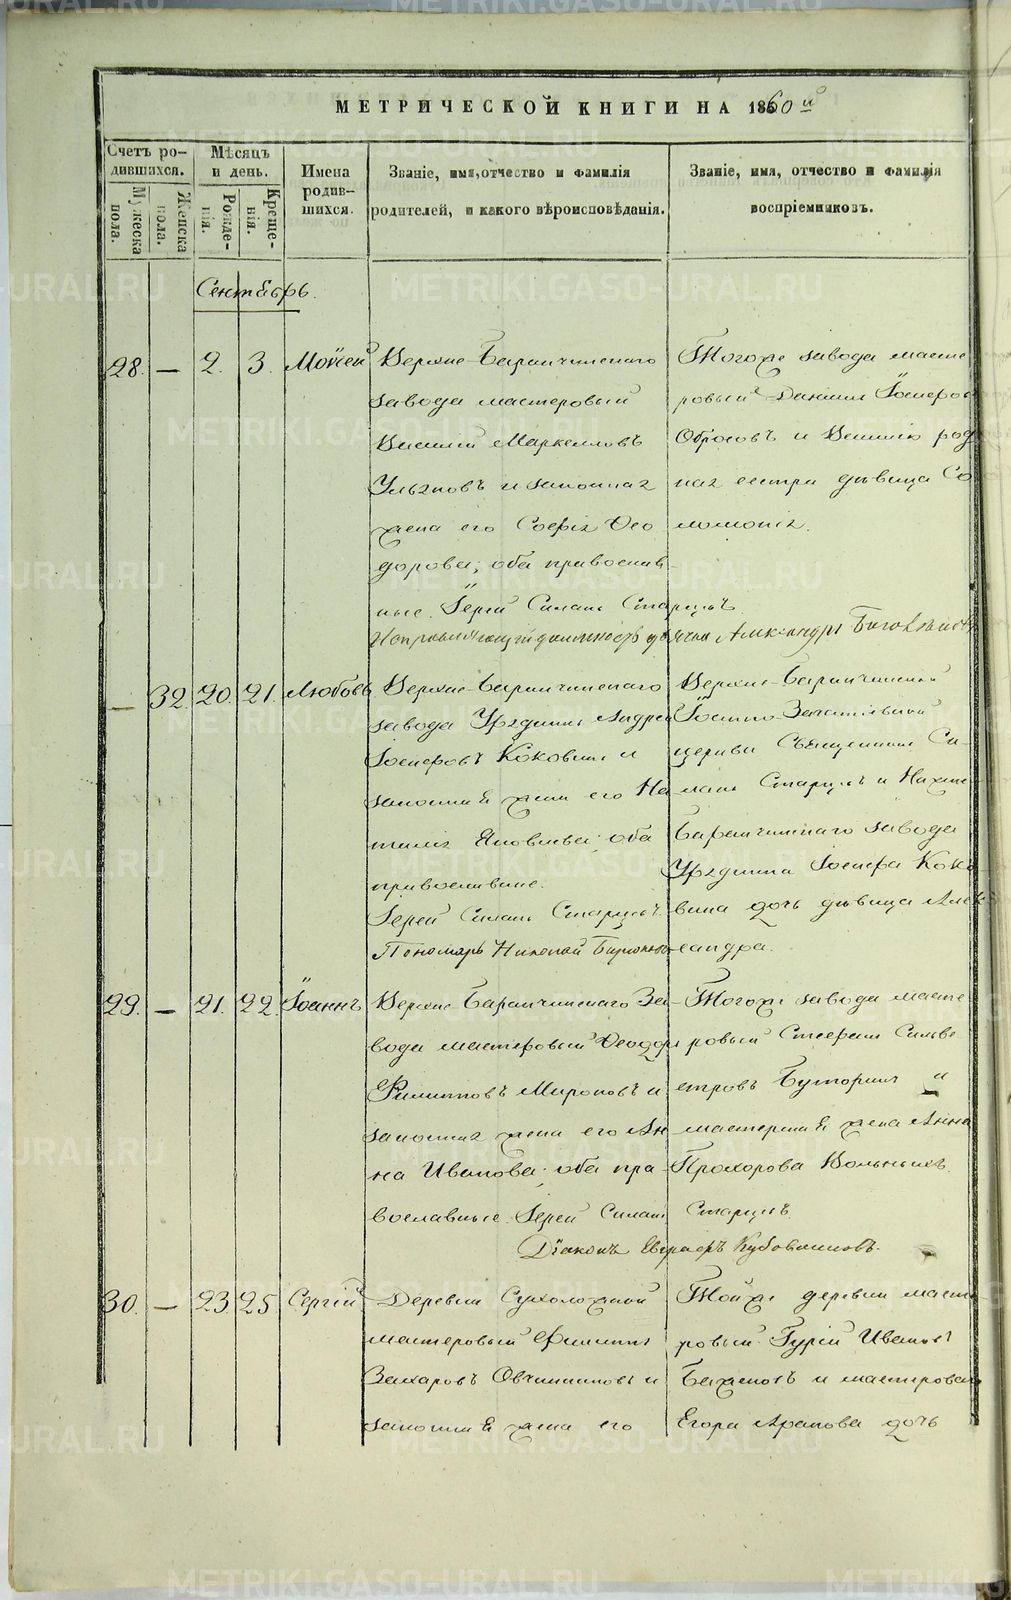 МЕТРИЧЕСКОЙ КНИГИ НА 1860й
Счетъ родившихся.
Мужеска пола.
Женска пола.
Мѣсяцъ и день.
Рожденія.
Крещенія.
Имена родившихся.
Званіе, имя, отчество и фамилія
родителей, и какого вѣроисповѣданія.
Званіе, имя, отчество и фамилія
воспріемниковъ.
Сентябрь.
28. — 2. 3. Моисей
Верхне-Баранчинскаго
завода мастеровый
Василій Маркелловъ
Ульяновъ и законная
жена его Софія Ѳео
дорова; оба православ-
ные. Іерей Силинъ Старцевъ
Исправляющій должность дьячка Александръ
Тогоже завода масте
ровый Даніилъ Іосифов
Обросовъ и Василію род
ная сестра дѣвица Со
ломонія.
— 32. 20. 21. Любовь
Верхне-Баранчинскаго
завода Урядникъ Андрей
Іосифовъ Коковинъ и
законная жена его На
талія Яковлева; оба
православные.
Іерей Силинъ Старцевъ.
Пономарь Николай
Верхне-Баранчинской
церкви Священникъ Си-
Старцевъ и Нижне
Баранчинскаго завода
Урядника Іосифа Коко
вина дочь дѣвица Алек
сандра.
29. — 21. 22. Іоаннъ
Верхне-Баранчинскаго За-
вода мастеровый Ѳеодоръ
Филипповъ Мироновъ и
законная жена его Ан
на Иванова; оба пра
вославные. Іерей Силинъ Старцевъ
Діаконъ Евграфъ Кубовщиковъ.
Тогоже завода масте
ровый Стефанъ Сильве
стровъ Буторинъ и
мастероваго жена Анна
Прохорова Вольныхъ.
30. — 23 25. Сергій
Деревни Сухоложской
мастеровый Филиппъ
Захаровъ Овчинниковъ и
законная жена его
Тойже деревни масте
ровый Гурій Ивановъ
Баженовъ и мастероваго
Егора Арапова дочь